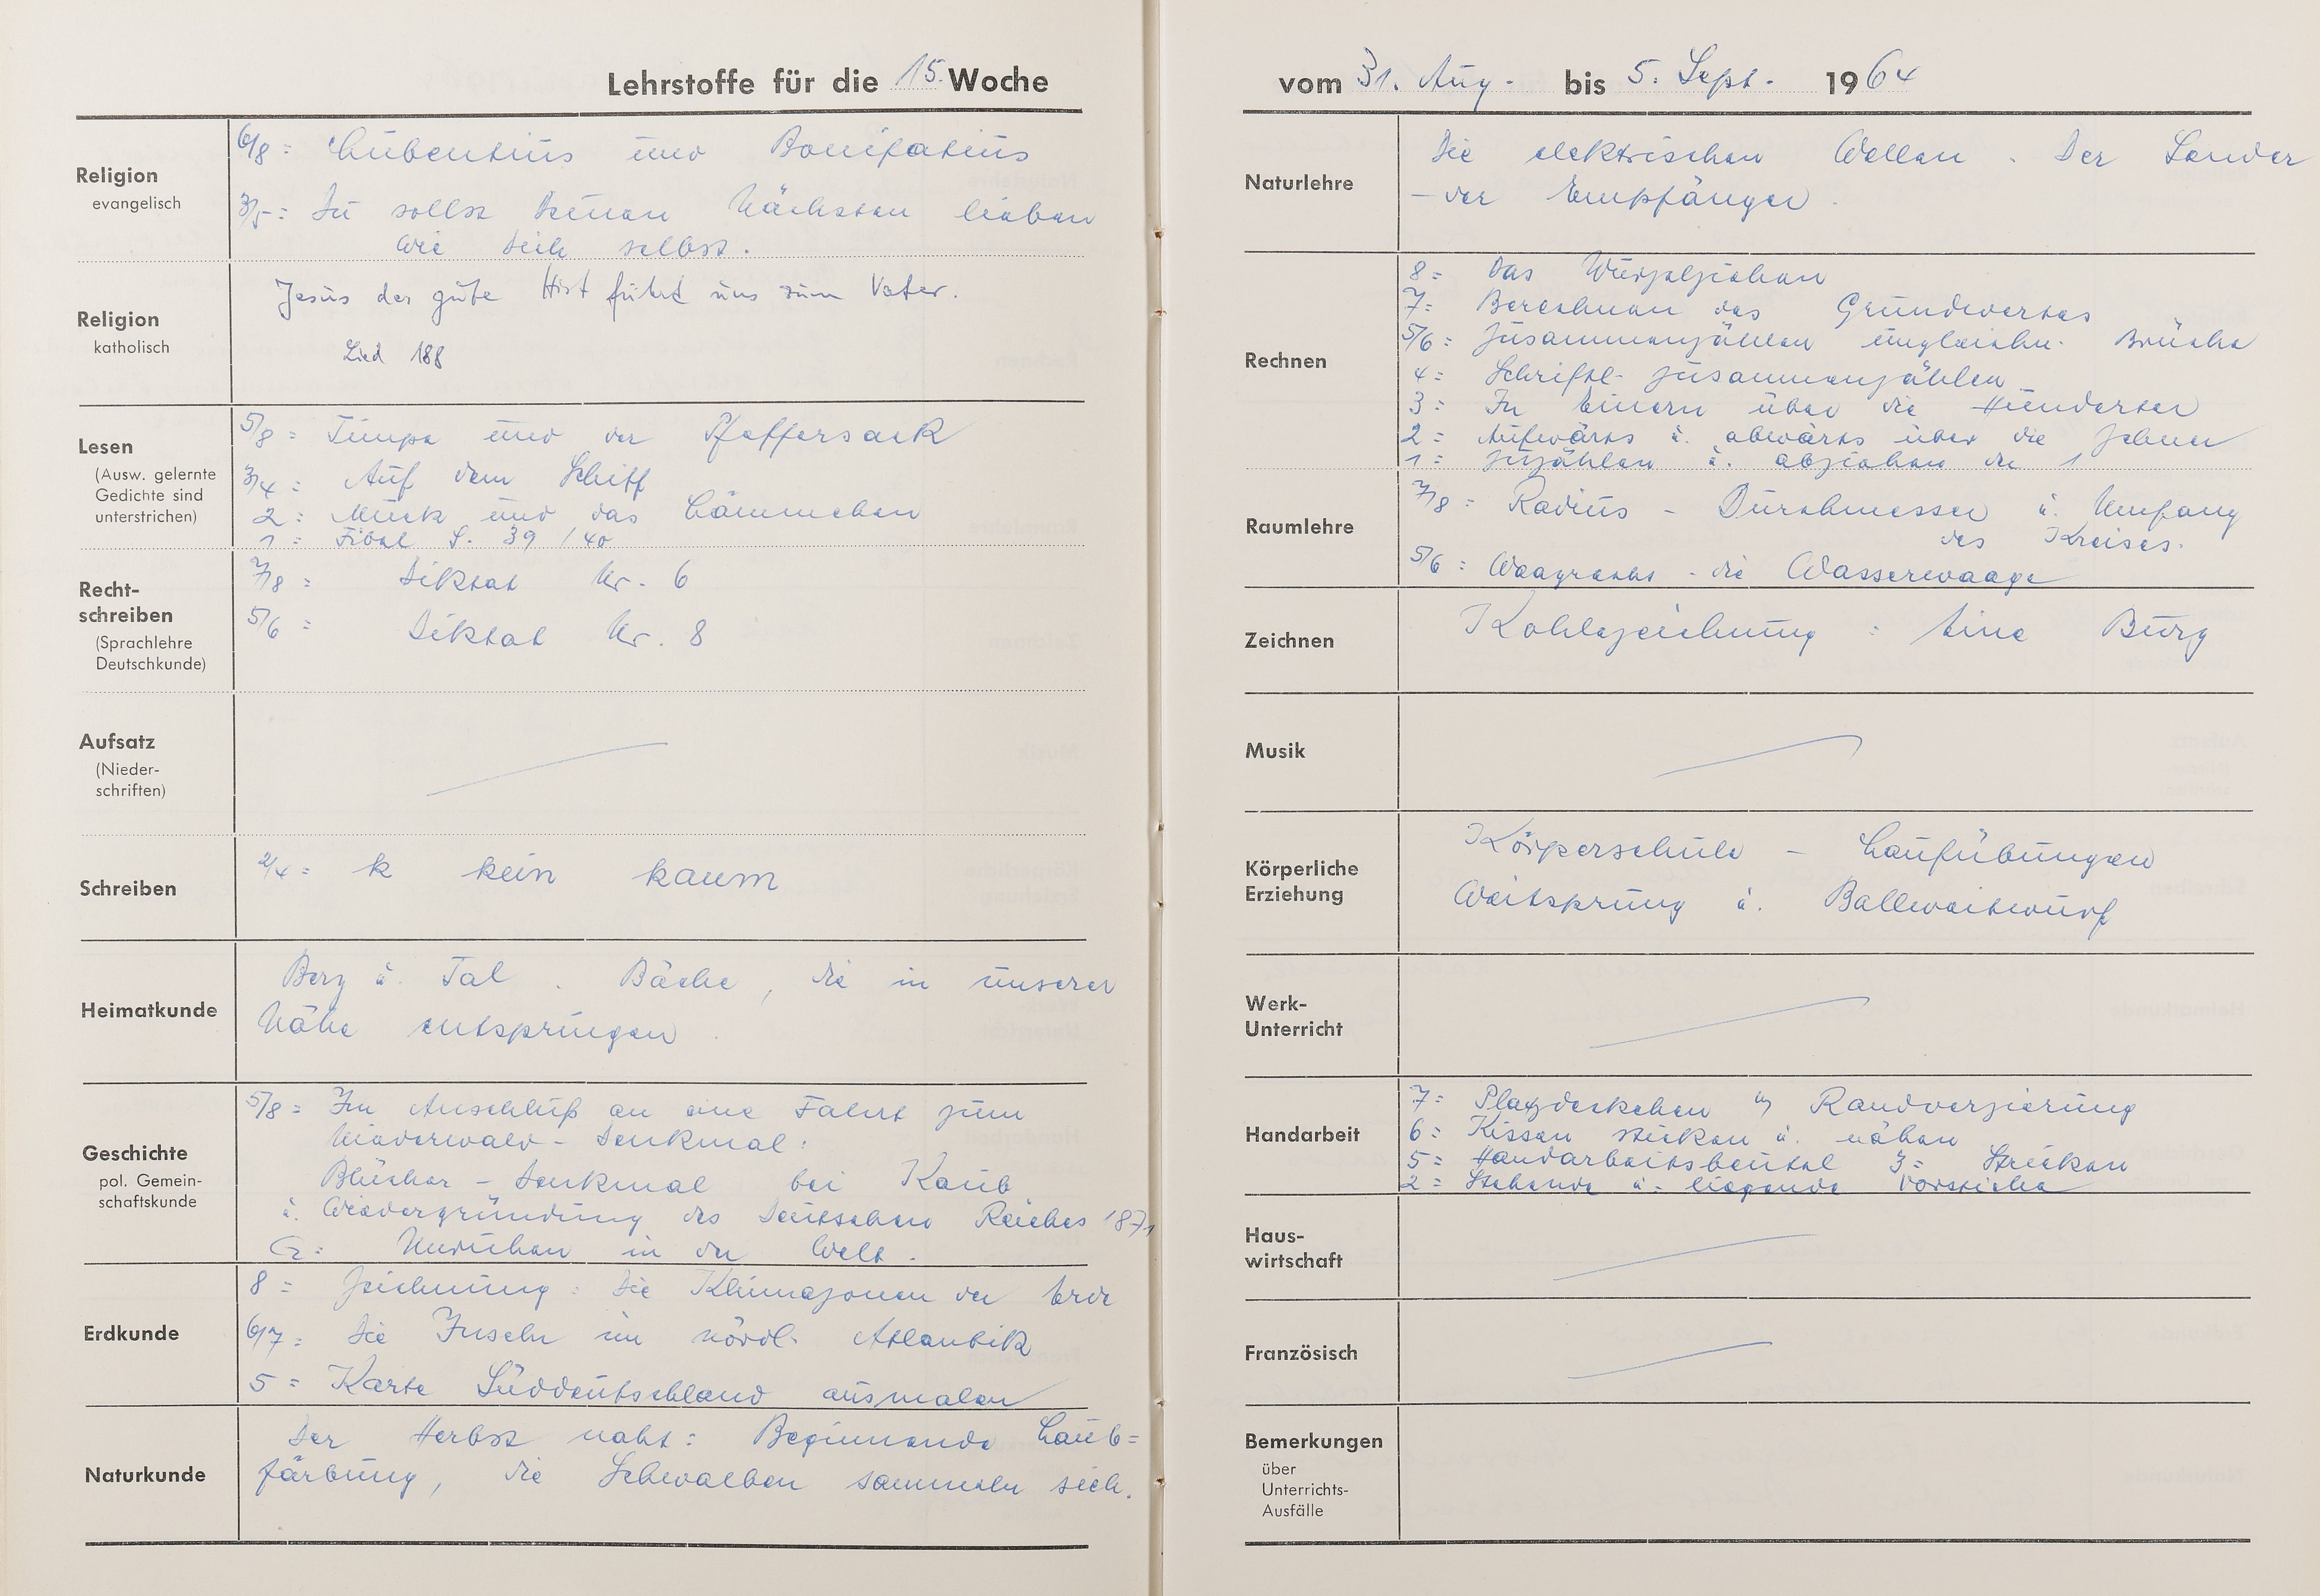 Lehrstoffe für die 15. Woche
Religion
evangelisch
6/8 = Lubentius und Bonifatius
3/5 = Du sollst Deinen Nächsten lieben
wie Dich selbst.
Religion
katholisch
Jesus der gute Hirt führt uns zum Vater.
Lied 188
Lesen
(Ausw. gelernte
Gedichte sind
unterstrichen)
5/8 = Timpe und der Pfeffersack
3/4 = Auf dem Schiff
2 = Muck und das Lämmchen
1 = Fibel S. 39 / 40
Recht-
schreiben
(Sprachlehre
Deutschkunde)
7/8 = Diktat Nr. 6
5/6 = Diktat Nr. 8
Aufsatz
(Nieder-
schriften)
Schreiben
2/4 = k kein kaum
Heimatkunde
Berg u. Tal . Bäche, die in unserer
Nähe entspringen
Geschichte
pol. Gemein-
schaftskunde
5/8 = Im Anschluß an eine Fahrt zum
Niederwald - Denkmal:
Blücher - Denkmal bei Kaub
u. Wiedergründung des Deutschen Reiches 1871
G: Unruhen in der Welt.
Erdkunde
8 = Zeichnung: Die Klimazonen der Erde
6/7 = Die Inseln im nördl. Atlantik
5 = Karte Süddeutschland ausmalen
Naturkunde
Der Herbst naht: Beginnende Laub=
färbung, die Schwalben sammeln sich.
vom 31. Aug. bis 5. Sept. 1964
Naturlehre
Die elektrischen Wellen . Der Sender
- der Empfänger.
Rechnen
8 = Das Wurzelziehen
7 = Berechnen des Grundwertes
5/6 = Zusammenzählen ungleichn. Brüche
4 = Schriftl. Zusammenzählen
3 = In Einern über die Hunderter
2 = Aufwärts u. abwärts über die Zehner
1 = Zuzählen u. abziehen der 1
Raumlehre
7/8 = Radius - Durchmesser u. Umfang
des Kreises.
5/6 = Waagrecht - die Wasserwaage
Zeichnen
Kohlezeichnung : Eine Burg
Musik
Körperliche
Erziehung
Körperschule - Laufübungen
Weitsprung u. Ballweitwurf
Werk-
Unterricht
Handarbeit
7 = Platzdeckchen Randverzierung
6 = Kissen sticken u. nähen
5 = Handarbeitsbeutel 3 = Stricken
2 = Stehende u. liegende Vorstiche
Haus-
wirtschaft
Französisch
Bemerkungen
über
Unterrichts-
Ausfälle